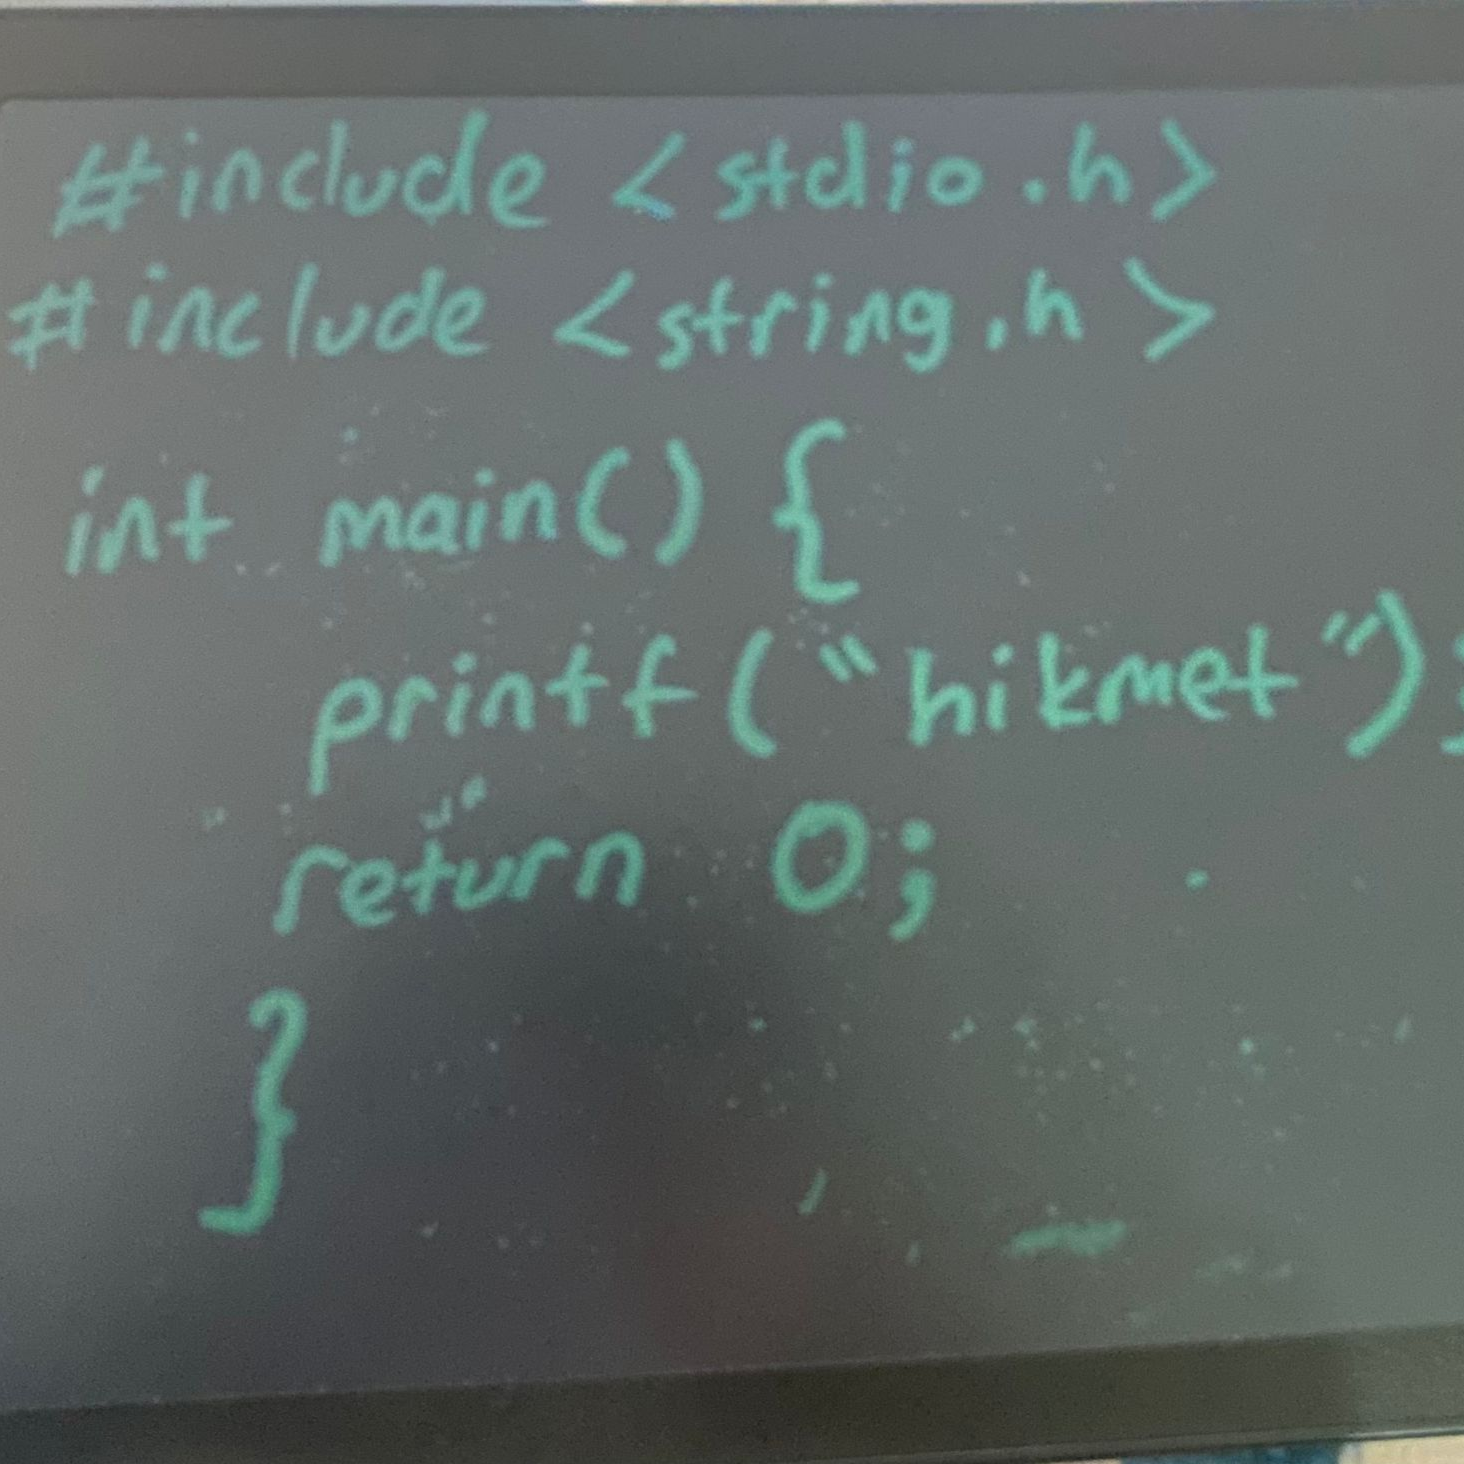 #include <stdio.h>
#include <string.h>
int main() {
printf("hikmet");
return 0;
}